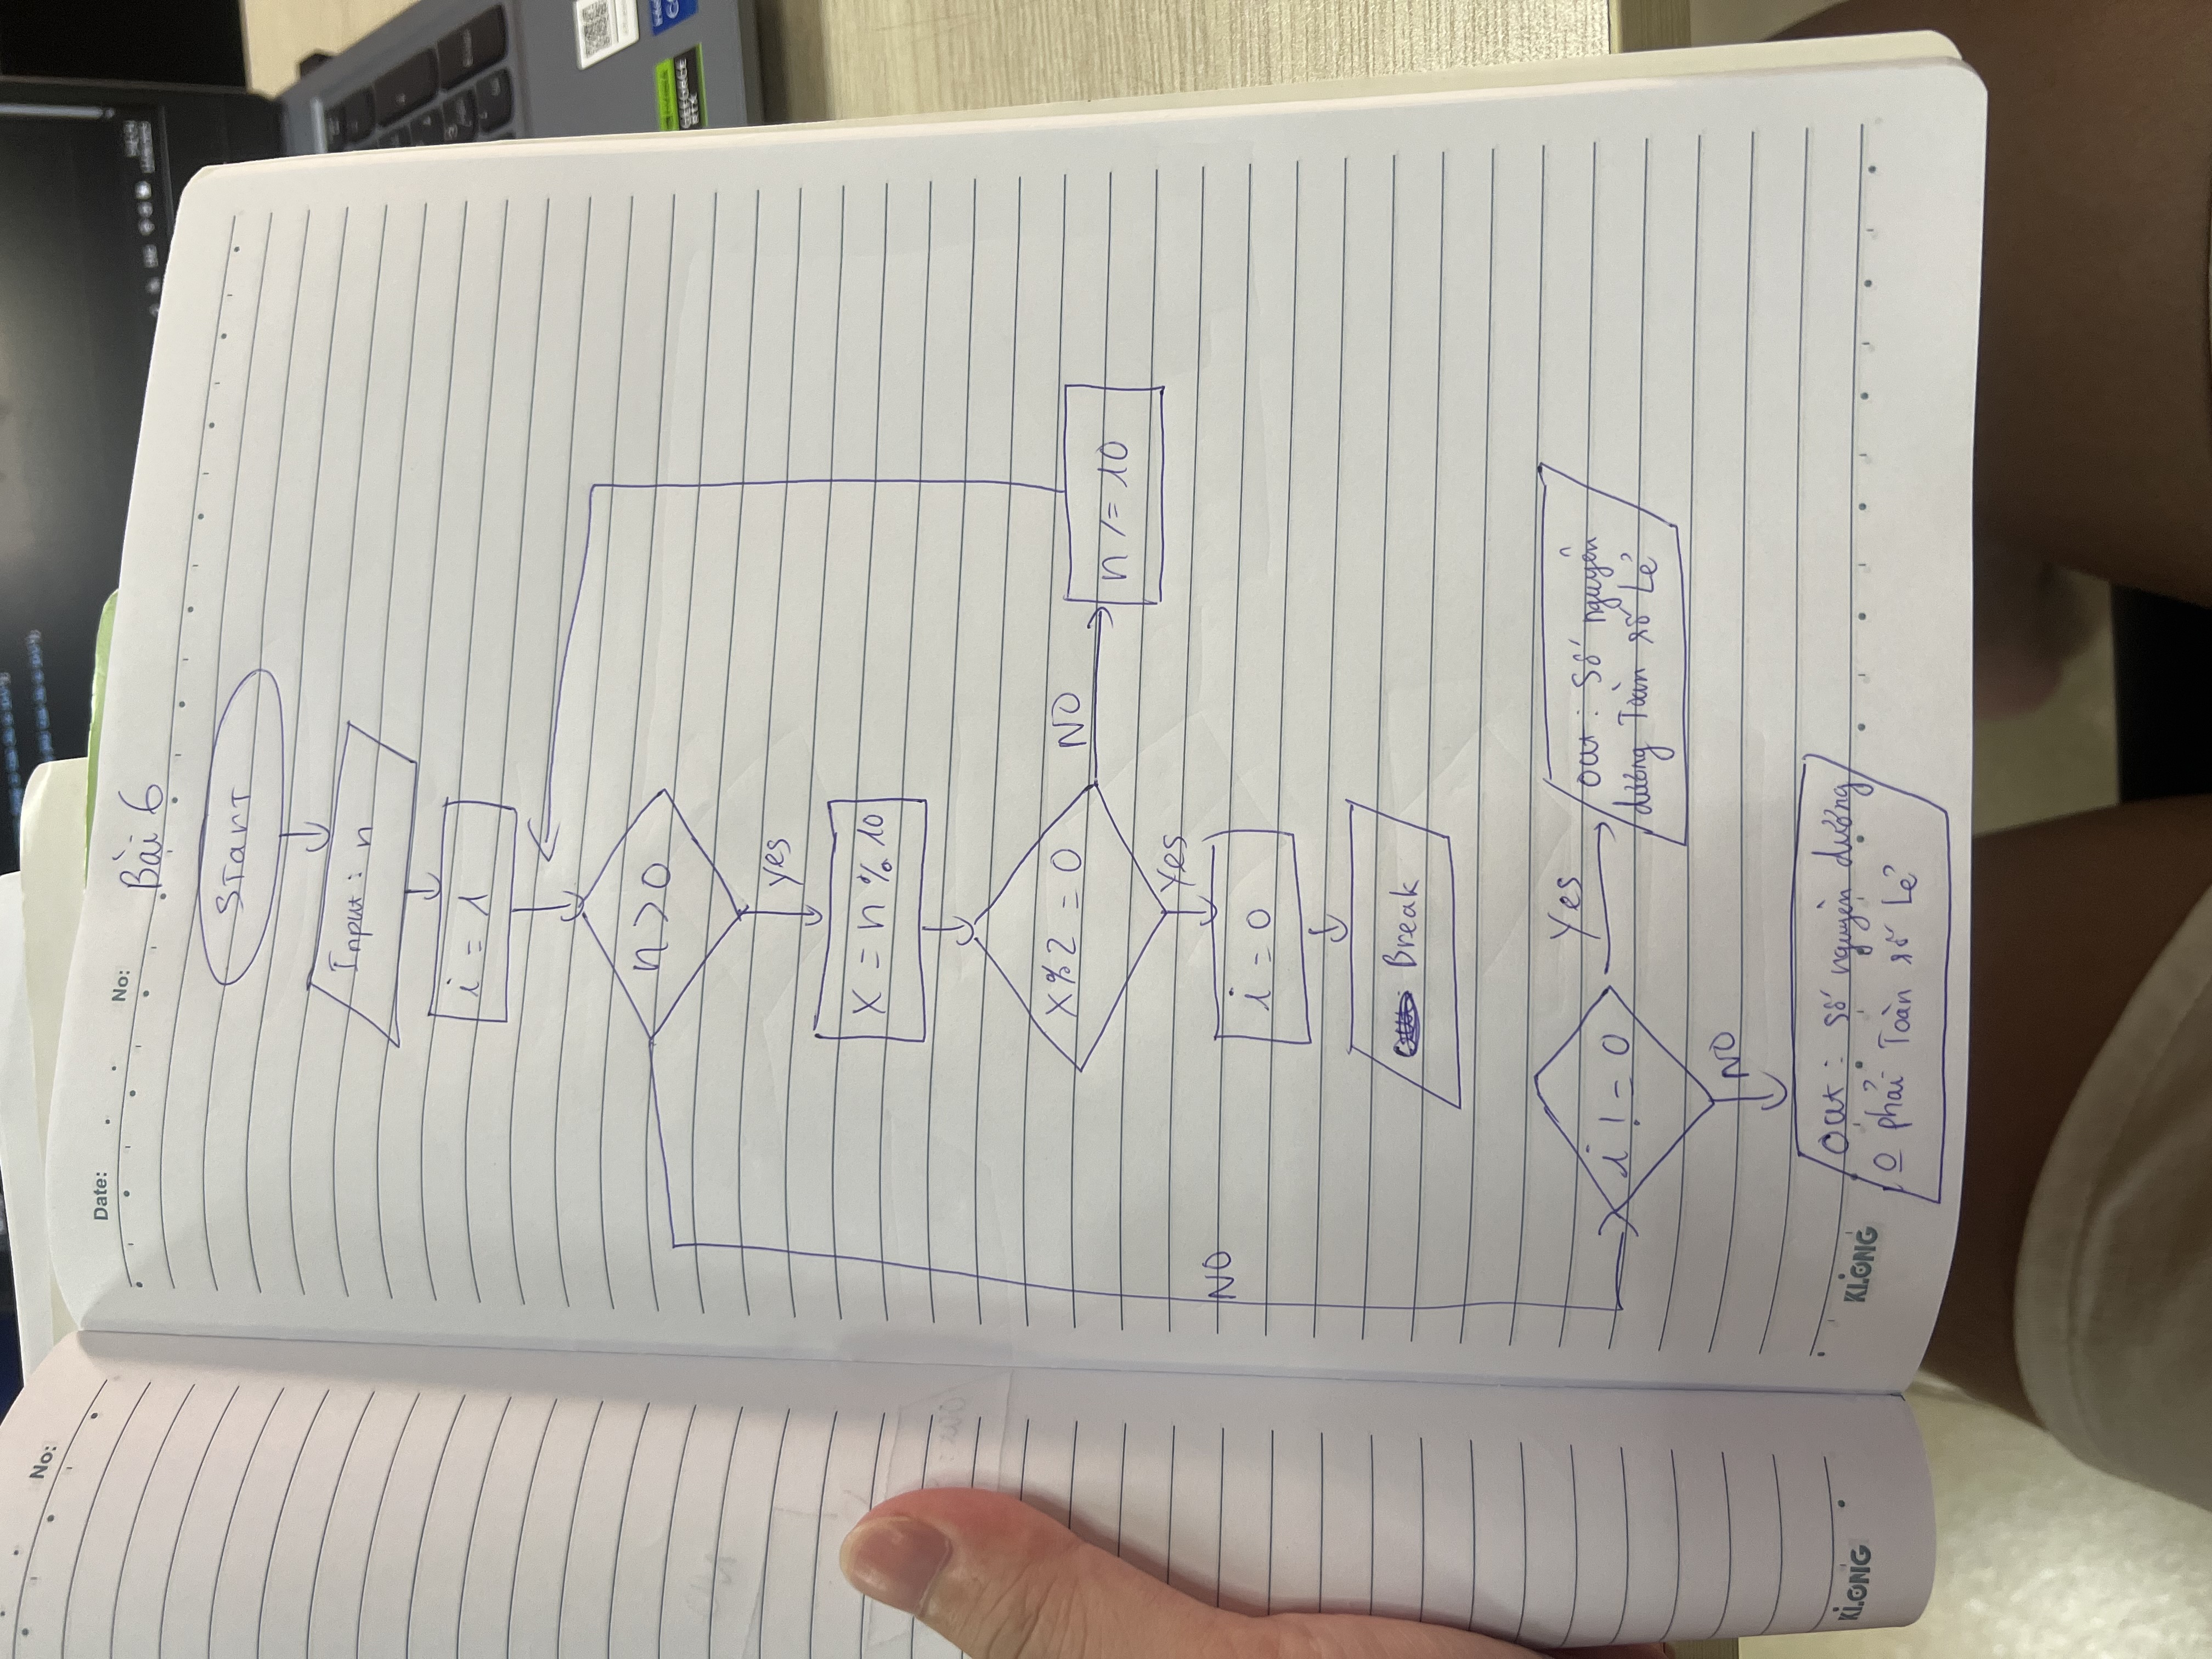 No:
Date:
No:
Bài 6
Start
Input: n
i = 1
n > 0
yes
x = n % 10
x%2 = 0
NO
n /= 10
Yes
NO
i = 0
Break
i != 0
Yes
out: Số nguyên
dương Toàn số Lẻ
NO
out: số nguyên dương
0 phải Toàn số Lẻ
KLONG
KLONG
GEFORCE
RTX